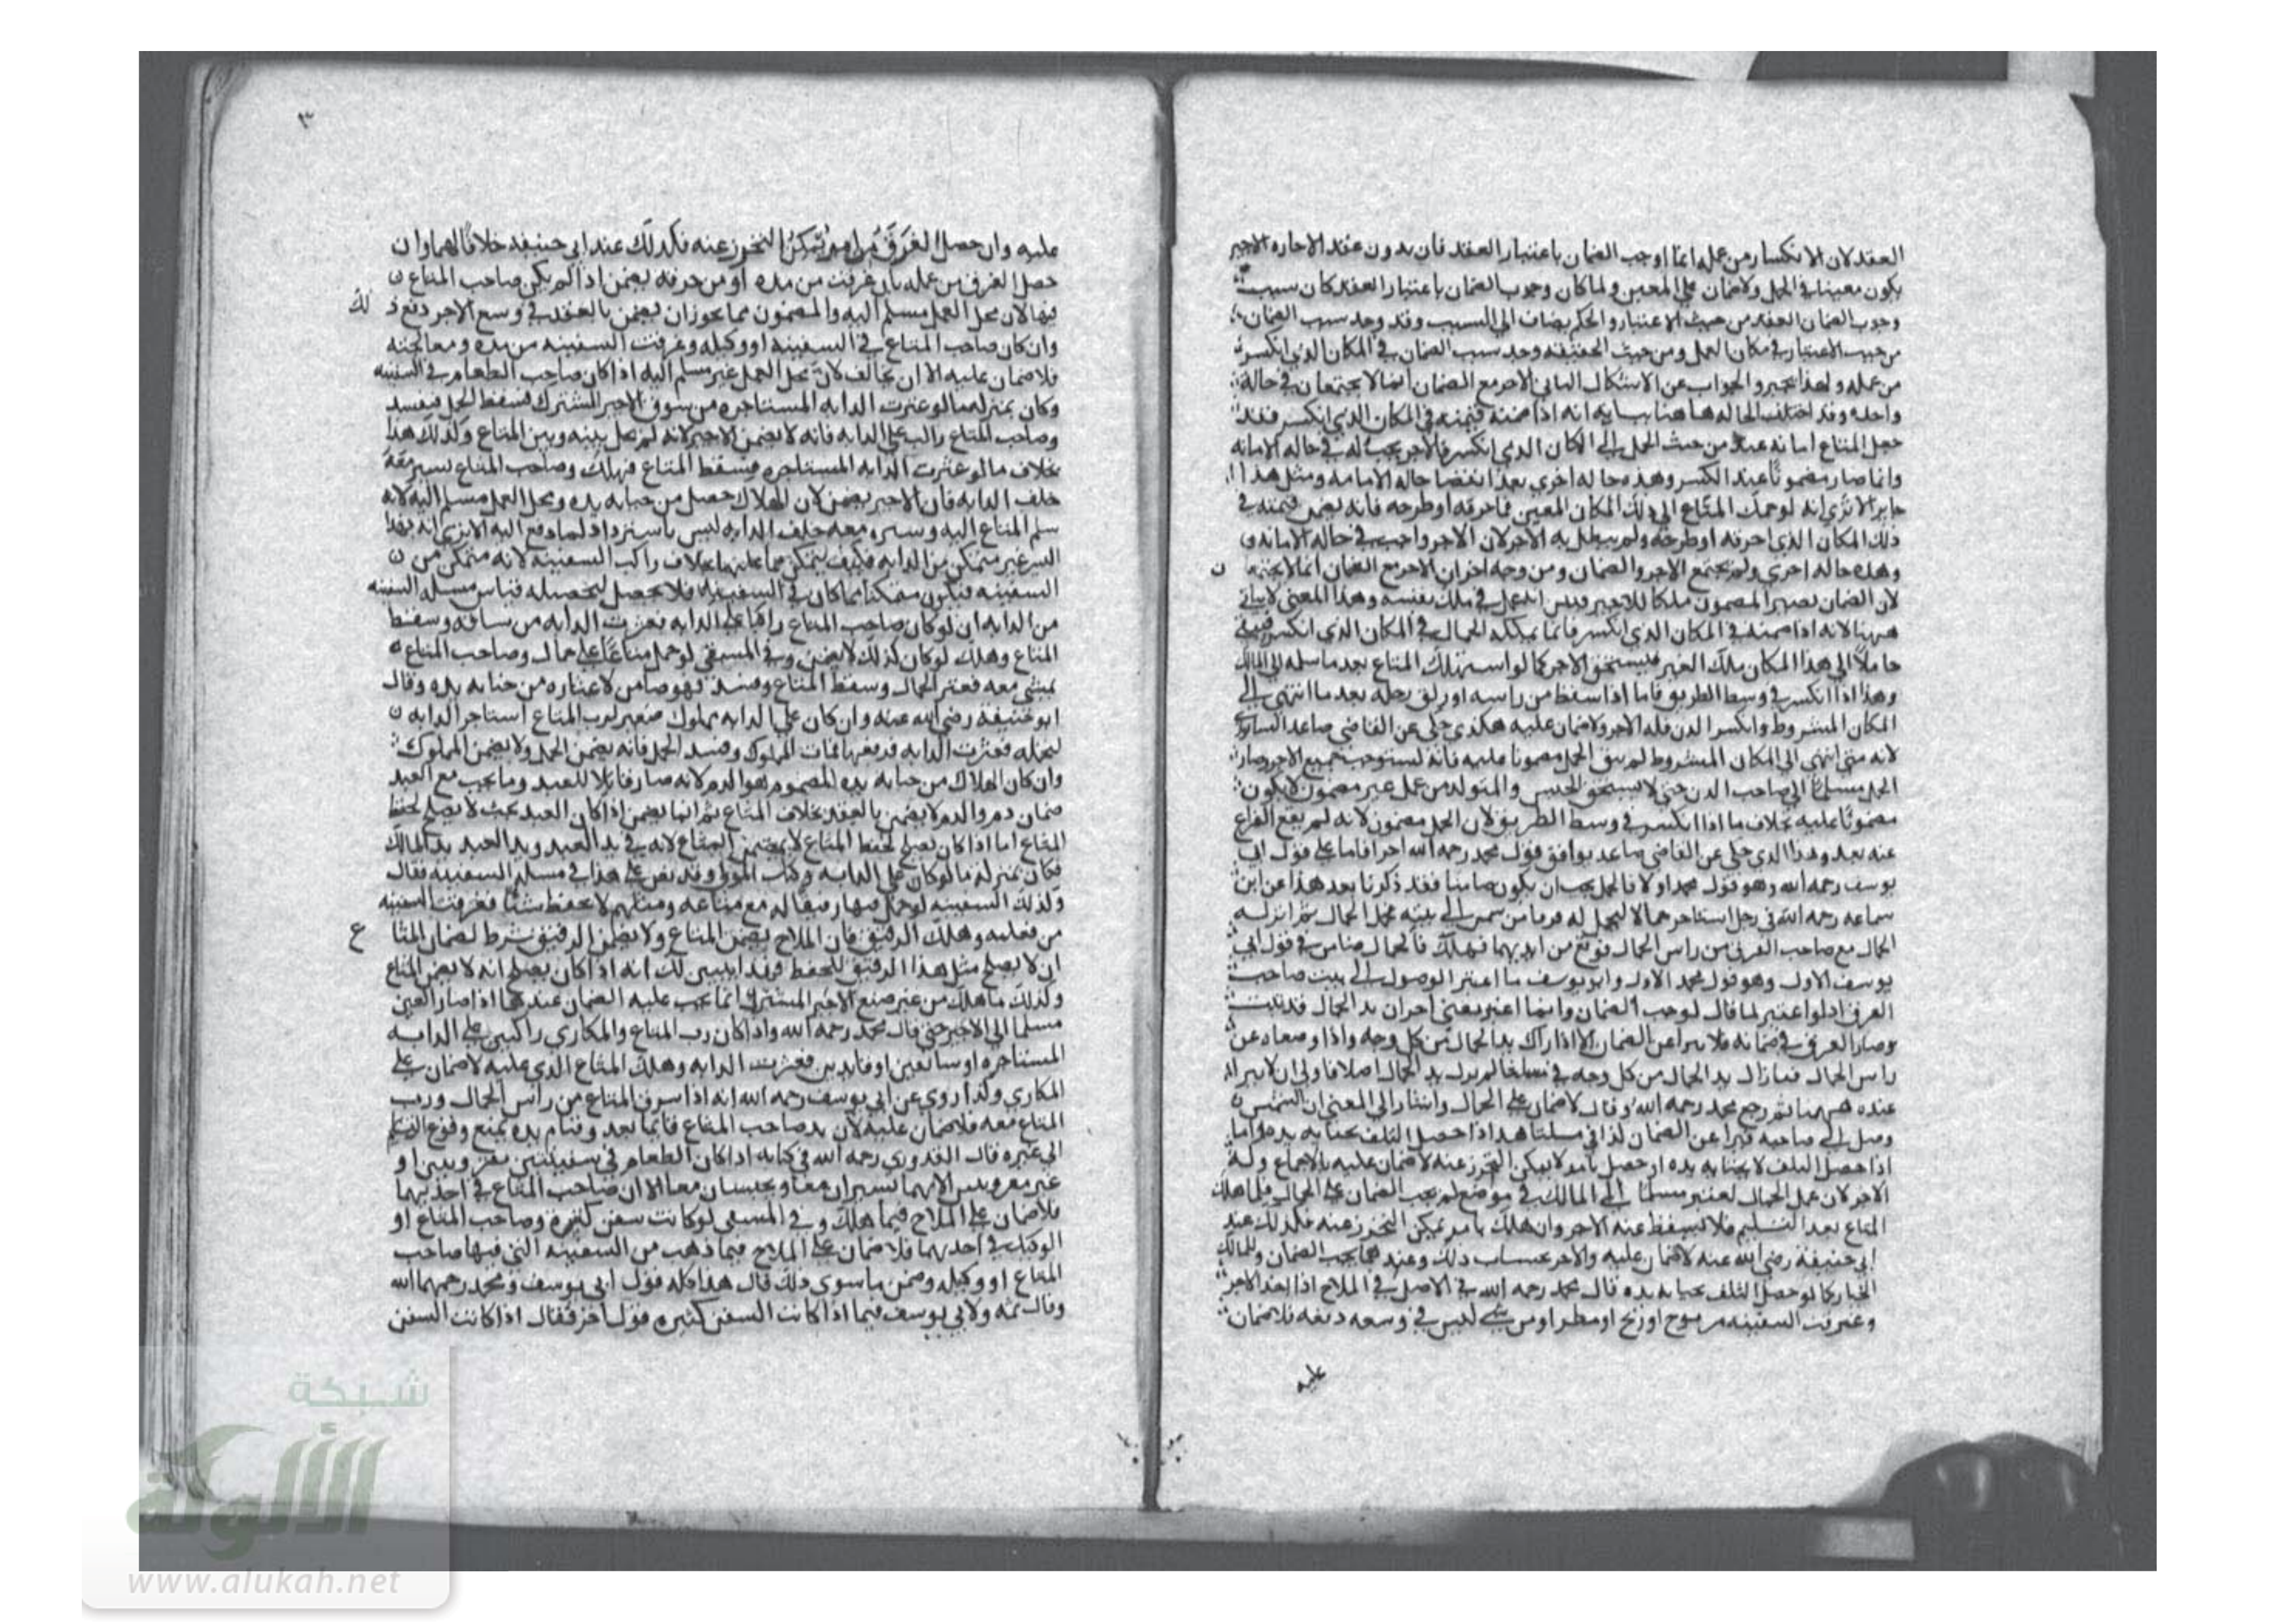 العقد لان الانكسار من عمله انما اوجب الضمان باعتبار العقد فان بدون عقد الاجاره الاجير
يكون معينا في الحمل ولا ضمان علي المعين ولما كان وجوب الضمان باعتبار العقد كان سبب
وجوب الضمان العقد من حيث الاعتبار والحكم يضاف الي السبب وقد وجد سبب الضمان
من حيث الاعتبار في مكان العمل ومن حيث الحقيقه وجد سبب الضمان في المكان الذي انكسر
من عمله ولهذا يخير والجواب عن الاشكال الثاني الاجر مع الضمان انما لا يجتمعان في حالة
واحده وقد اختلف الحاله هاهنا بيانه انه اذا ضمنه قيمته في المكان الذي انكسر فقد
جعل المتاع امانه عنده من حيث الحمل الي المكان الذي انكسر فالاجر يجب له في حاله الامانه
وانما صار مضمونا عند الكسر وهذه حاله اخري بعد انقضا حاله الامانه ومثل هذا
جايز الا تري انه لو حمل المتاع الي ذلك المكان المعين فاحرقه او طرحه فانه يضمن قيمته في
ذلك المكان الذي احرقه او طرحه ولم يبطل به الاجر لان الاجر واجب في حاله الامانه و
وهذه حاله اخري ولم يجتمع الاجر والضمان ومن وجه اخر ان الاجر مع الضمان انما لا يجتمعا ن
لان الضمان يصير المضمون ملكا للاجير فتبين انه عمل في ملك نفسه وهذا المعني لا يتاتي
ههنا لانه اذا ضمنه في المكان الذي انكسر فانما يملكه الحمال في المكان الذي انكسر فيبقي
حاملا الي هذا المكان ملك الغير فيستحق الاجر كما لو استهلك المتاع بعد ما سلمه الي المالك
وهذا اذا انكسر في وسط الطريق فاما اذا سقط من راسه او زلق رجله بعد ما انتهي الي
المكان المشروط وانكسر الدن فله الاجر ولا ضمان عليه هكذي حكي عن القاضي صاعد النيسابوري
لانه متي انتهي الي المكان المشروط لم يبق الحمل مضمونا عليه فانه استوجب جميع الاجر وصار
الحمل مسلما الي صاحب الدن حتي لا يستحق الحبس والمتولد من عمل غير مضمون لا يكون
مضمونا عليه بخلاف ما اذا انكسر في وسط الطريق لان الحمل مضمون لانه لم يقع الفراغ
عنه بعد وهذا الذي حكي عن القاضي صاعد يوافق قول محمد رحمه الله اخرا فاما علي قول ابي
يوسف رحمه الله وهو قول محمد اولا فالحمل يجب ان يكون ضامنا فقد ذكرنا بعد هذا عن ابن
سماعه رحمه الله في رجل استاجر حمالا ليحمل له فرقا من سمن الي بيته فحمل الحمال ثم انزله
الحمال مع صاحب الفرق من راس الحمال فوقع من ايديهما فهلك فالحمال ضامن في قول ابي
يوسف الاول وهو قول محمد الاول وابو يوسف ما اعتبر الوصول الي بيت صاحب
الفرق اذ لو اعتبر لما قال لوجب الضمان وانما اعتبر معني اخر ان يد الحمال قد ثبتت
وصار الفرق في ضمانه فلا يبرا عن الضمان الا اذا زال يد الحمال من كل وجه واذا وضعاه عن
راس الحمال فما زال يد الحمال من كل وجه في مسلتنا لم يزل يد الحمال اصلا فاولي ان لا يبرا
عنده ههنا ثم رجع محمد رحمه الله وقال لا ضمان علي الحمال واشار الي المعني ان السمن
وصل الي صاحبه فيبرا عن الضمان كذا في مسلتنا هذا اذا حصل التلف بجنايه يده واما
اذا حصل التلف لا بجنايه يده ان حصل بامر لا يمكن التحرز عنه لا ضمان عليه بالاجماع وله
الاجر لان عمل الحمال يعتبر مسلما الي المالك في موضع لم يجب الضمان علي الحمال فهلاك
المتاع بعد التسليم فلا يسقط عنه الاجر وان هلك بامر يمكن التحرز عنه فكذلك عند
ابي حنيفة رضي الله عنه لا ضمان عليه والاجر بحساب ذلك وعندهما يجب الضمان وللمالك
الخيار كما لو حصل التلف بجنايه يده قال محمد رحمه الله في الاصل في الملاح اذا اخذ الاجر
وغرقت السفينه من موج او ريح او مطر او من شي ليس في وسعه دفعه فلا ضمان
عليه
٣
عليه وان حصل الغرق من امر يمكن التحرز عنه فكذلك عند ابي حنيفه خلافا لهما وان
حصل الغرق من عمله بان غرقت من مده او من حرفه يضمن اذا لم يكن صاحب المتاع ن
فيها لان محل العمل مسلم اليه والمضمون مما يجوز ان يضمن بالعقد في وسع الاجر دفع ذ لك
وان كان صاحب المتاع في السفينه او وكيله وغرقت السفينه من مده ومعالجته
فلا ضمان عليه الا ان يخالف لان محل العمل غير مسلم اليه اذا كان صاحب الطعام في السفينه
وكان بمنزله ما لو عثرت الدابه المستاجره من سوق الاجير المشترك فسقط الحمل ففسد
وصاحب المتاع راكب علي الدابه فانه لا يضمن الاجير لانه لم يخل بينه وبين المتاع وكذلك هذا
بخلاف ما لو عثرت الدابه المستاجره فسقط المتاع فهلك وصاحب المتاع يسير معه
خلف الدابه فان الاجير يضمن لان الهلاك حصل من جنايه يده ومحل العمل مسلم اليه لانه
سلم المتاع اليه وسيره معه خلف الدابه ليس باسترداد لما دفع اليه الا تري انه بهذا
السير غير متمكن من الدابه فكيف يتمكن مما عليها بخلاف راكب السفينه لانه متمكن من ن
السفينه فيكون متمكنا مما كان في السفينه فلا يحصل لتحصيله قياس مسله السفينه
من الدابه ان لو كان صاحب المتاع راكبا علي الدابه فعثرت الدابه من سياقه وسقط
المتاع وهلك لو كان كذلك لا يضمن وفي المنتقي لو حمل متاعا علي حمال وصاحب المتاع
يمشي معه فعثر الحمال وسقط المتاع وفسد فهو ضامن لا عثاره من جنايه يده وقال
ابو حنيفة رضي الله عنه وان كان علي الدابه مملوك صغير لرب المتاع استاجر الدابه ن
ليحمله فعثرت الدابه فوقع بها فمات المملوك وفسد الحمل فانه يضمن الحمل ولا يضمن المملوك
وان كان الهلاك من جنايه يده المضموم هو الدم لانه صار قاتلا للعبد وما يجب مع العبد
ضمان دم والدم لا يضمن بالعقد بخلاف المتاع ثم انما يضمن اذا كان العبد بحيث لا يصلح لحفظ
المتاع اما اذا كان يصلح لحفظ المتاع لا يضمن المتاع لانه في يد العبد ويد العبد يد المالك
فكان بمنزله ما لو كان علي الدابه وكيل المولي وقد نص علي هذا في مسله السفينه فقال
وكذلك السفينه لو حمل فيها رقيقا له مع متاعه ومثلهم لا يحفظ شيئا فغرقت السفينه
من فعليه وهلك الرقيق فان الملاح يضمن المتاع ولا يضمن الرقيق شرط لضمان المتا ع
ان لا يصلح مثل هذا الرقيق للحفظ فهذا يبين لك انه اذا كان يصلح انه لا يضمن المتاع
وكذلك ما هلك من غير صنع الاجير المشترك انما يجب عليه الضمان عندهما اذا صار العين
مسلما الي الاجير حتي قال محمد رحمه الله واذا كان رب المتاع والمكاري راكبين علي الدابه
المستاجره او سائقين او قايدين فعثرت الدابه وهلك المتاع الذي عليه لا ضمان علي
المكاري وكذا روي عن ابي يوسف رحمه الله انه اذا سرق المتاع من راس الحمال ورب
المتاع معه فلا ضمان عليه لان يد صاحب المتاع قائما بعد وقيام يده يمنع وقوع التسليم
الي غيره قال القدوري رحمه الله في كتابه اذا كان الطعام في سفينتين مقرونتين او
غير مقرونتين الا انهما تسيران معا وتحبسان معا الا ان صاحب المتاع في احديهما
فلا ضمان علي الملاح فيما هلك وفي المنتقي لو كانت سفن كثيرة وصاحب المتاع او
الوكيل في احديهما فلا ضمان علي الملاح فيما ذهب من السفينه التي فيها صاحب
المتاع او وكيله وضمن ما سوي ذلك قال هذا كله قول ابي يوسف ومحمد رحمهما الله
وقال ثمه ولابي يوسف فيما اذا كانت السفن كثيره قول اخر فقال اذا كانت السفن
شبكة
الألوكة
www.alukah.net